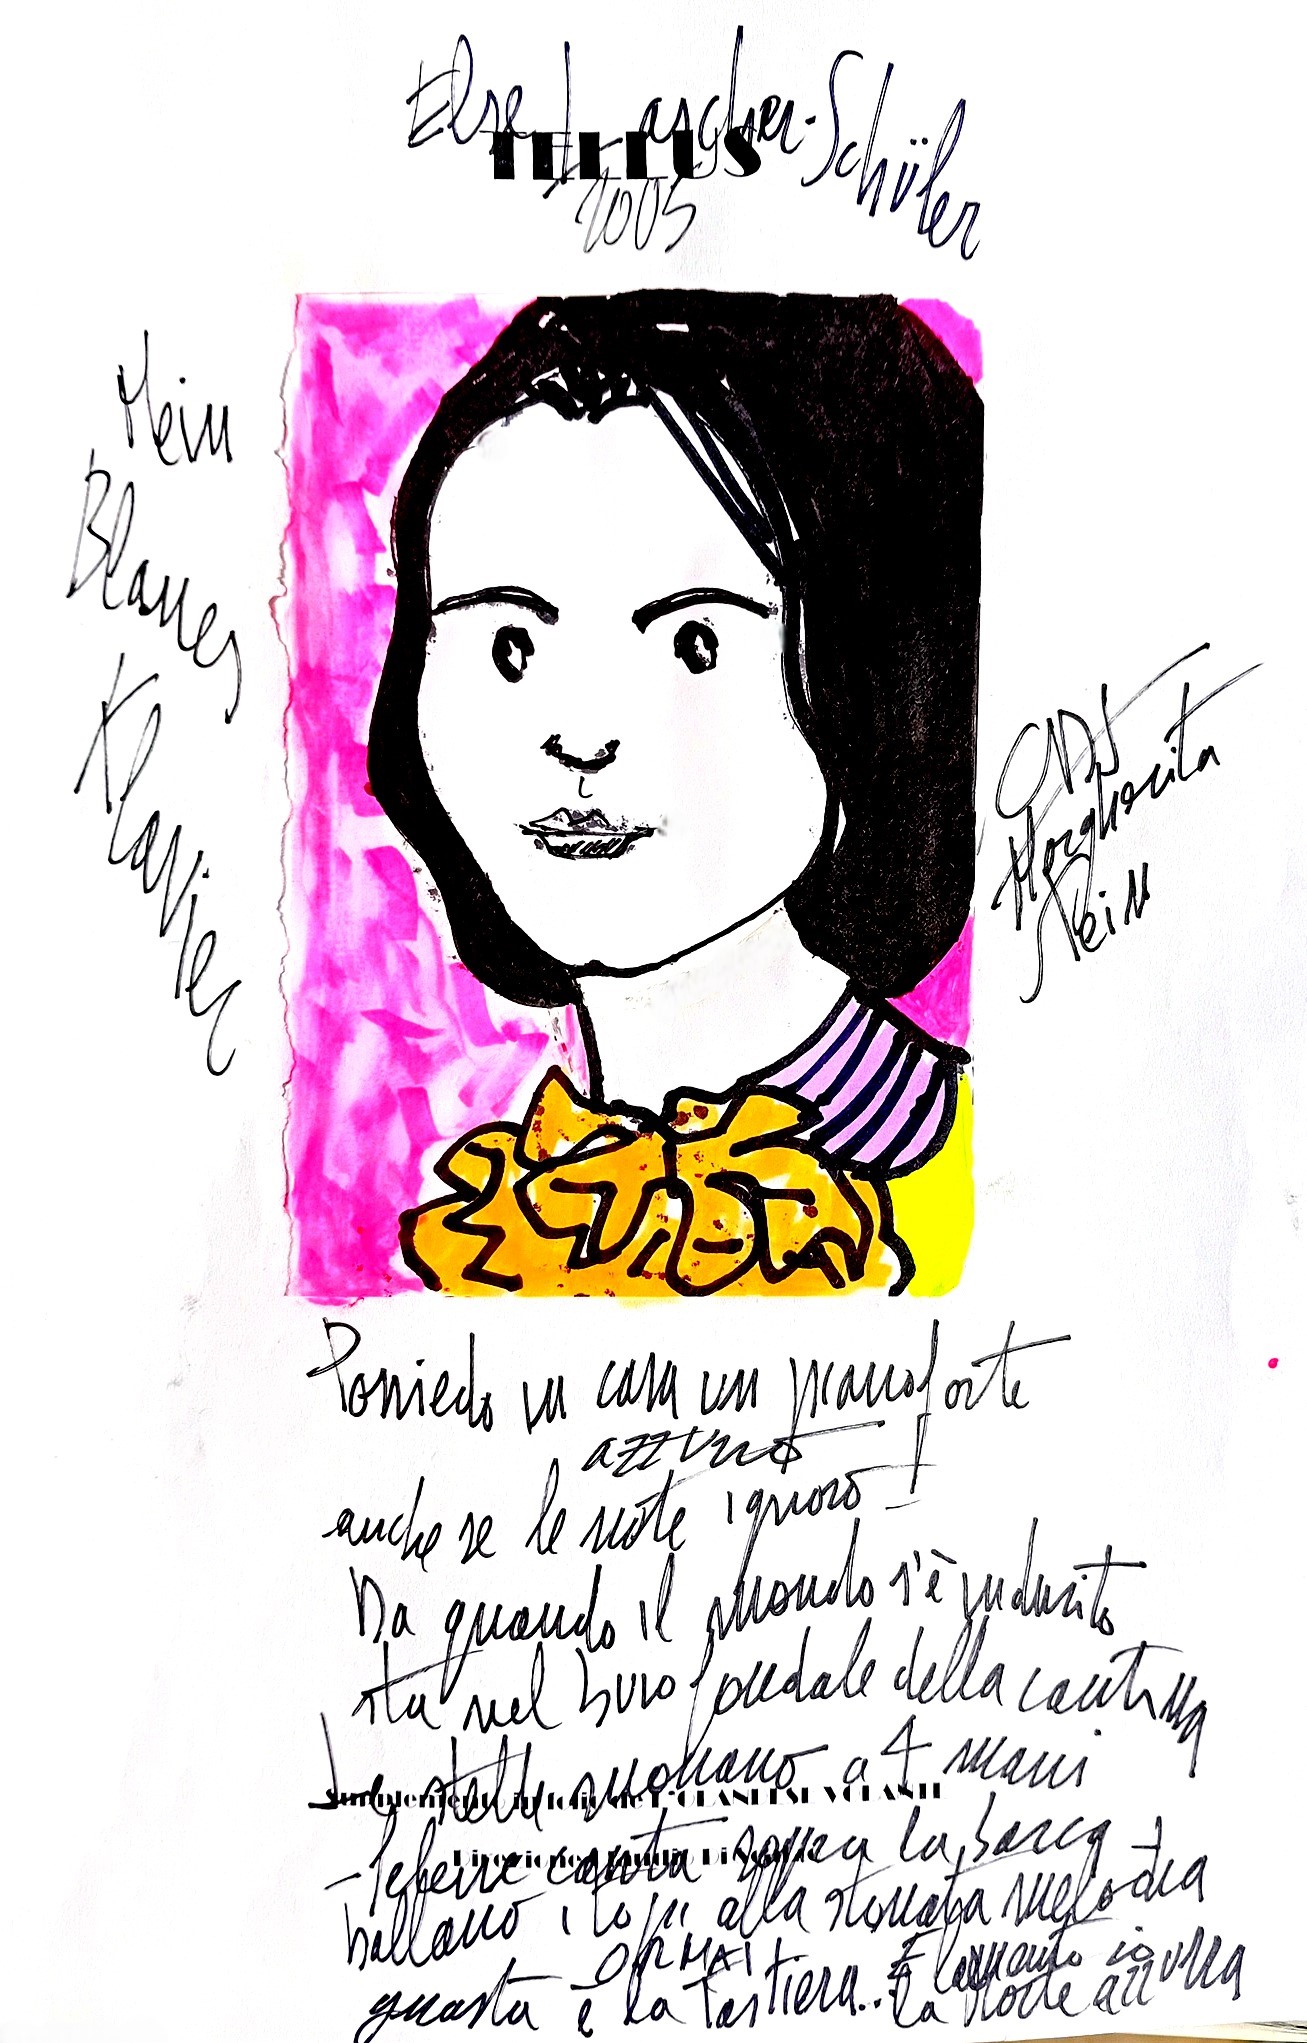 Else Lascher-Schüler
TELLUS
2005
Mein
Blaues
Klavier
CDS
Margherita
Stein
Possiedo in casa un pianoforte
azzurro
anche se le note ignoro!
Da quando il mondo s'è indurito
sta nel buio fondale della cantina
Le stelle suonano a 4 mani
Supplemento in folio de L'OLANDESE VOLANTE
- Selene canta sopra la barca -
Direzione Claudio Di
ballano i topi alla stonata melodia
ORMAI
guasta è la tastiera... E io
la azzurra